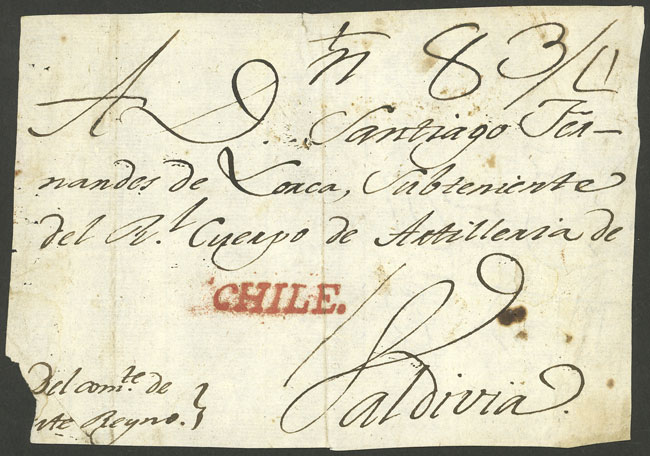 n 83/
A D. Santiago Fer-
nandes de Lorca, Subteniente
del R.l Cuerpo de Artilleria de
CHILE.
Valdivia.
Del com.te de
Reyno.